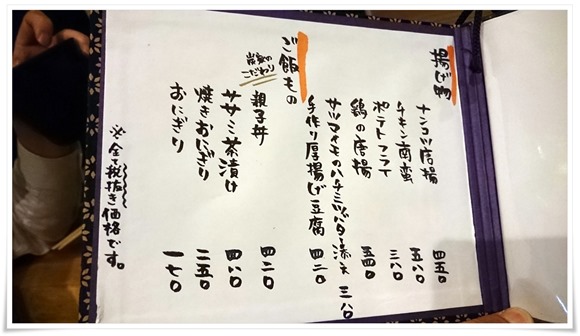 揚げ物
ナンコツ唐揚 四五〇
チキン南蛮 五八〇
ポテトフライ 三八〇
鶏の唐揚 五四〇
サツマイモのハチミツバター添え 三八〇
手作り厚揚げ豆腐 四二〇
ご飯もの
こだわり
親子丼 四二〇
ササミ茶漬け 四八〇
焼きおにぎり 二五〇
おにぎり 一七〇
※全て税抜き価格です。